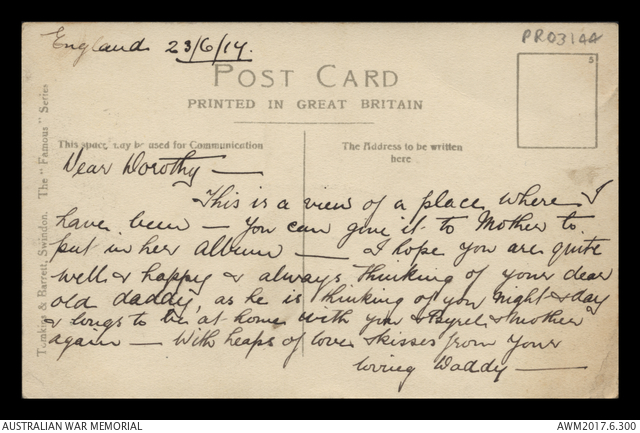 England 23/6/17.
PR03144
POST CARD
PRINTED IN GREAT BRITAIN
This space may be used for Communication
The Address to be written
here
Tomkins & Barrett, Swindon. The "Famous" Series
Dear Dorothy —
This is a view of a place where I
have been — you can give it to Mother to
put in her album — I hope you are quite
well & happy & always thinking of your dear
old daddy, as he is thinking of you night & day
& longs to be at home with you & & Mother
again — With heaps of love & kisses from your
loving Daddy —
AUSTRALIAN WAR MEMORIAL
AWM2017.6.300